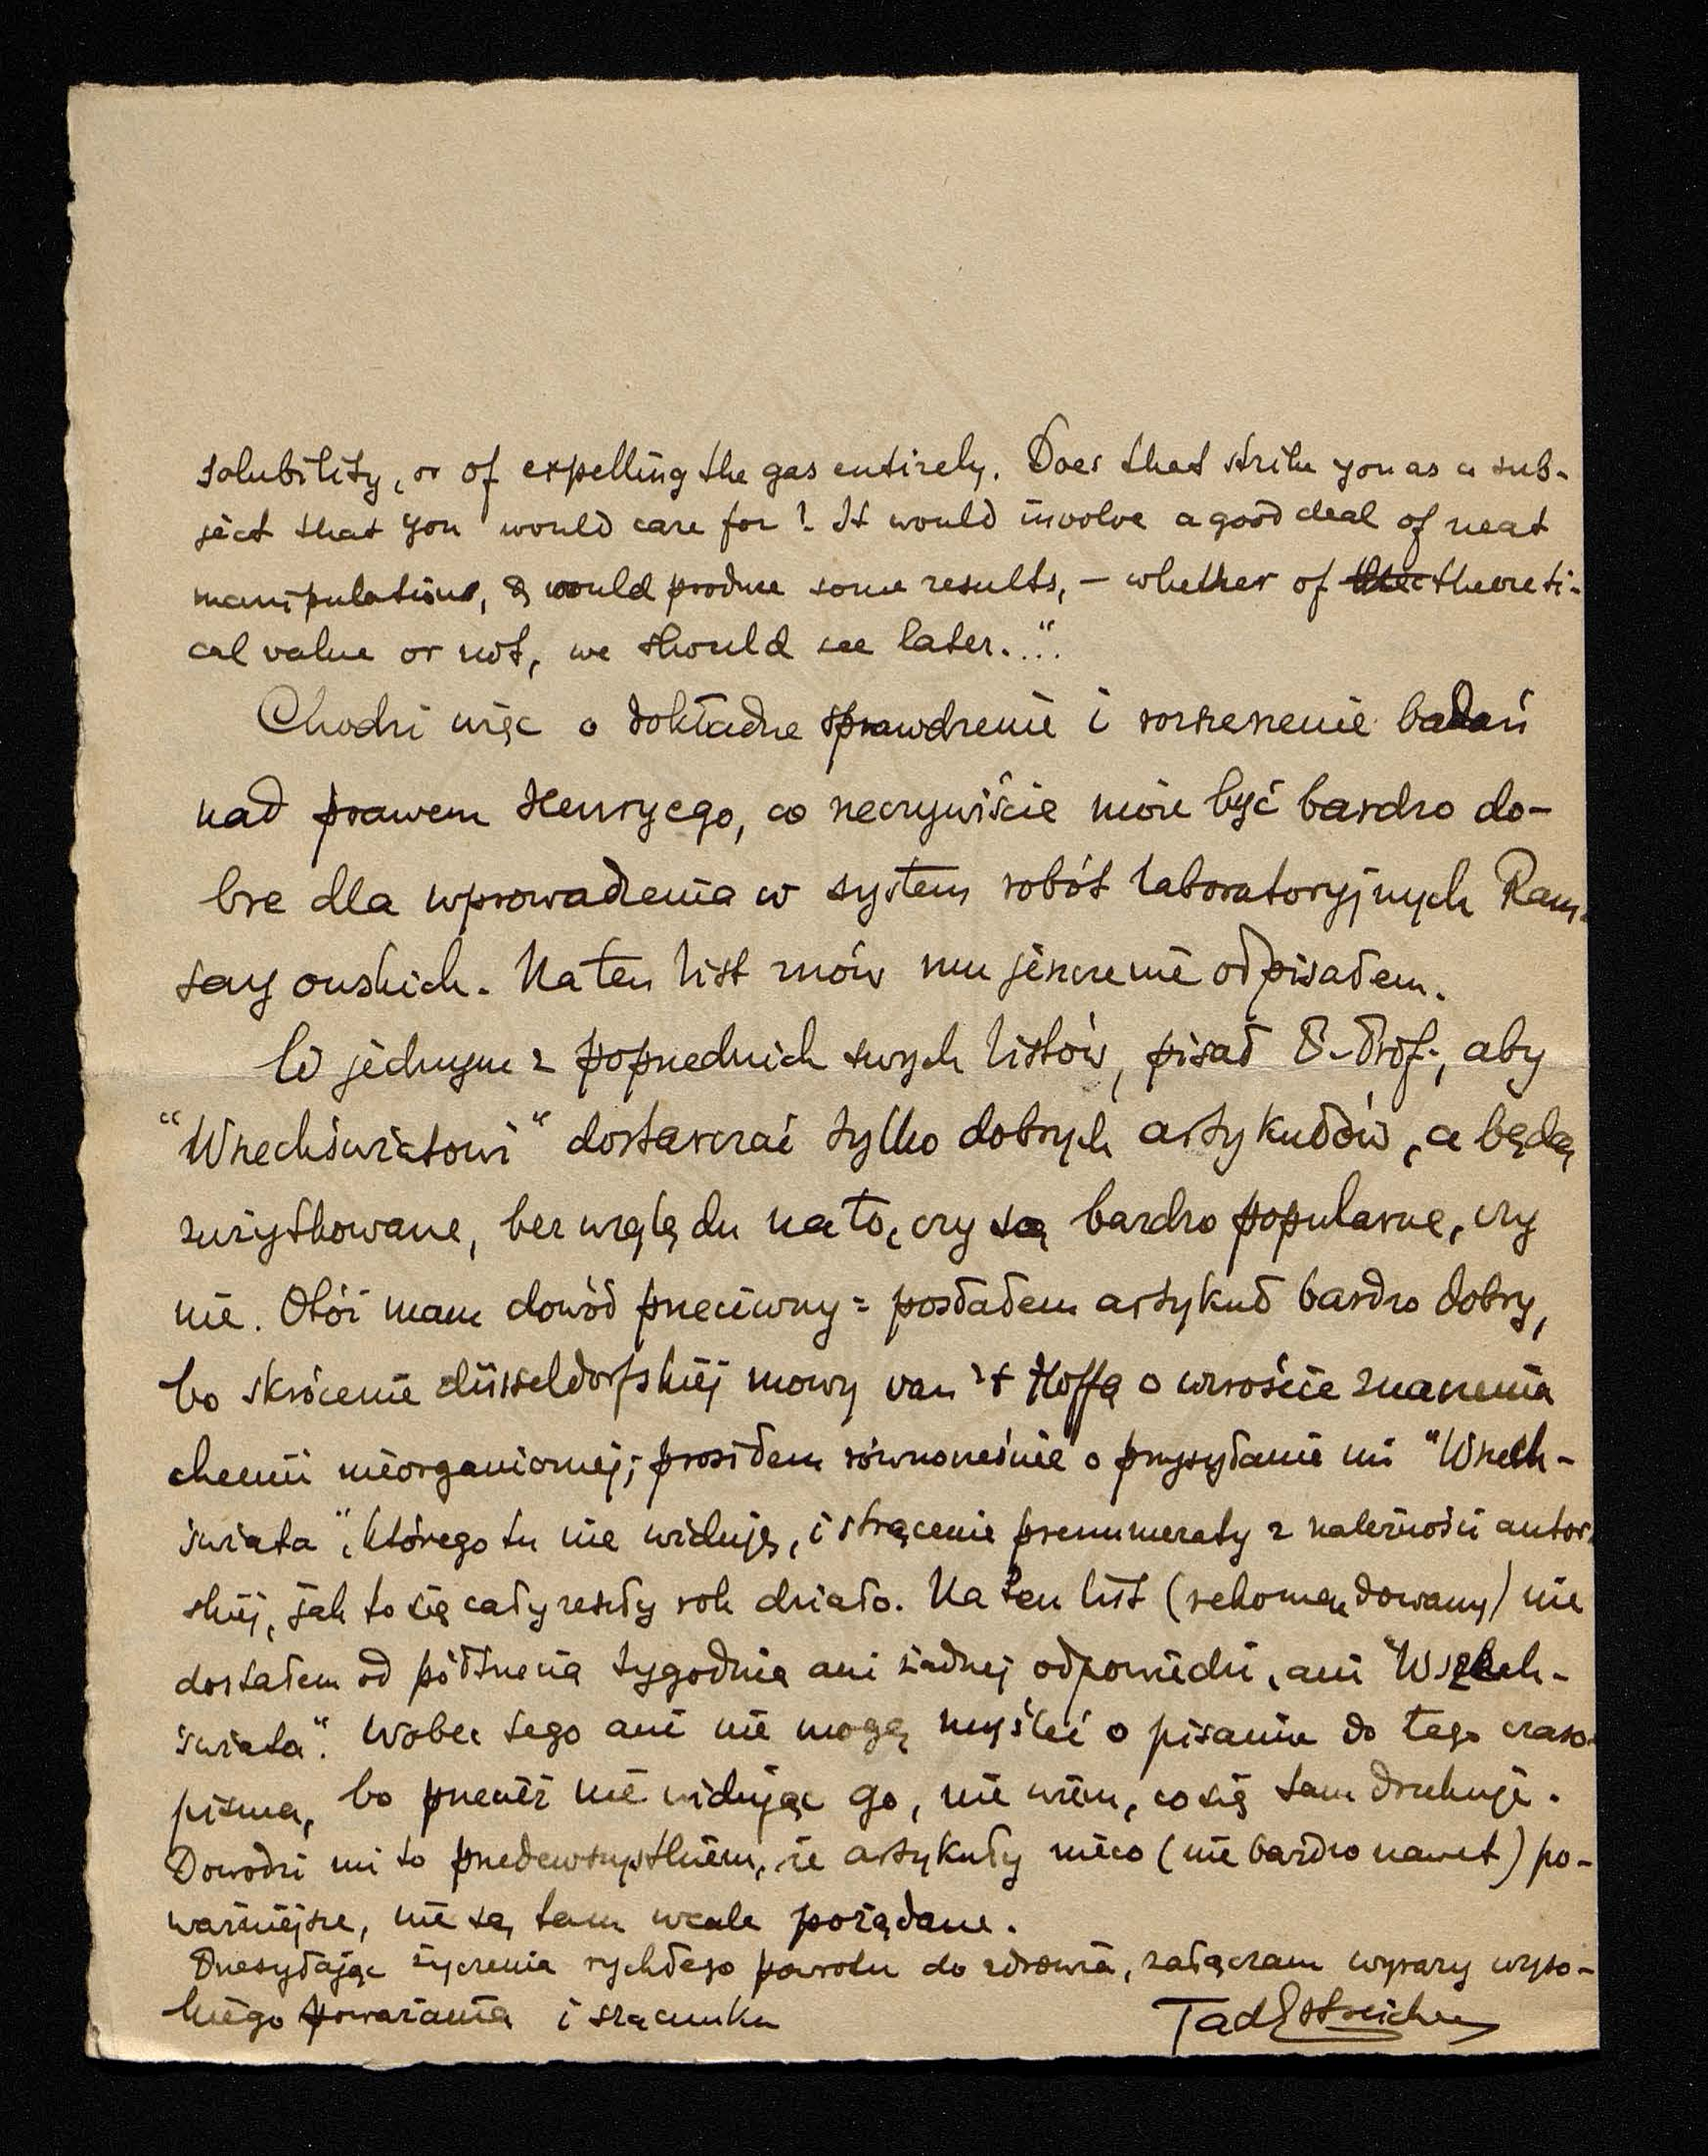 solubility, or of expelling the gas entirely. Does that strike you as a sub-
ject that you would care for? It would involve a good deal of neat
manipulations, & would produce some results, – whether of theoreti-
cal value or not, we should see later..."
Chodzi więc o dokładne sprawdzenie i rozszerzenie badań
nad prawem Henry'ego, co rzeczywiście może być bardzo do-
bre dla wprowadzenia w system robót laboratoryjnych Ram-
sayowskich. Na ten list znów mu jeszcze nie odpisałem.
W jednym z poprzednich swych listów, pisał P. Prof., aby
"Wszechświatowi" dostarczać tylko dobrych artykułów, a będą
zużytkowane, bez względu na to, czy są bardzo popularne, czy
nie. Otóż mam dowód przeciwny: posłałem artykuł bardzo dobry,
bo skrócenie düsseldorfskiej mowy van 't Hoffa o wzroście znaczenia
chemii nieorganicznej; prosiłem równocześnie o przysyłanie mi "Wszech-
świata", którego tu nie widuję, i strącenie prenumeraty z należności autor-
skiej, jak to się cały zeszły rok działo. Na ten list (rekomendowany) nie
dostałem od półtrzecia tygodnia ani żadnej odpowiedzi, ani "Wszech-
świata". Wobec tego ani nie mogę myśleć o pisaniu do tego czaso-
pisma, bo przecież nie widując go, nie wiem, co się tam drukuje.
Dowodzi mi to przedewszystkiem, że artykuły nieco (nie bardzo nawet) po-
ważniejsze, nie są tam wcale pożądane.
Przesyłając życzenia rychłego powrotu do zdrowia, załączam wyrazy wyso-
kiego poważania i szacunku TadEstreicher